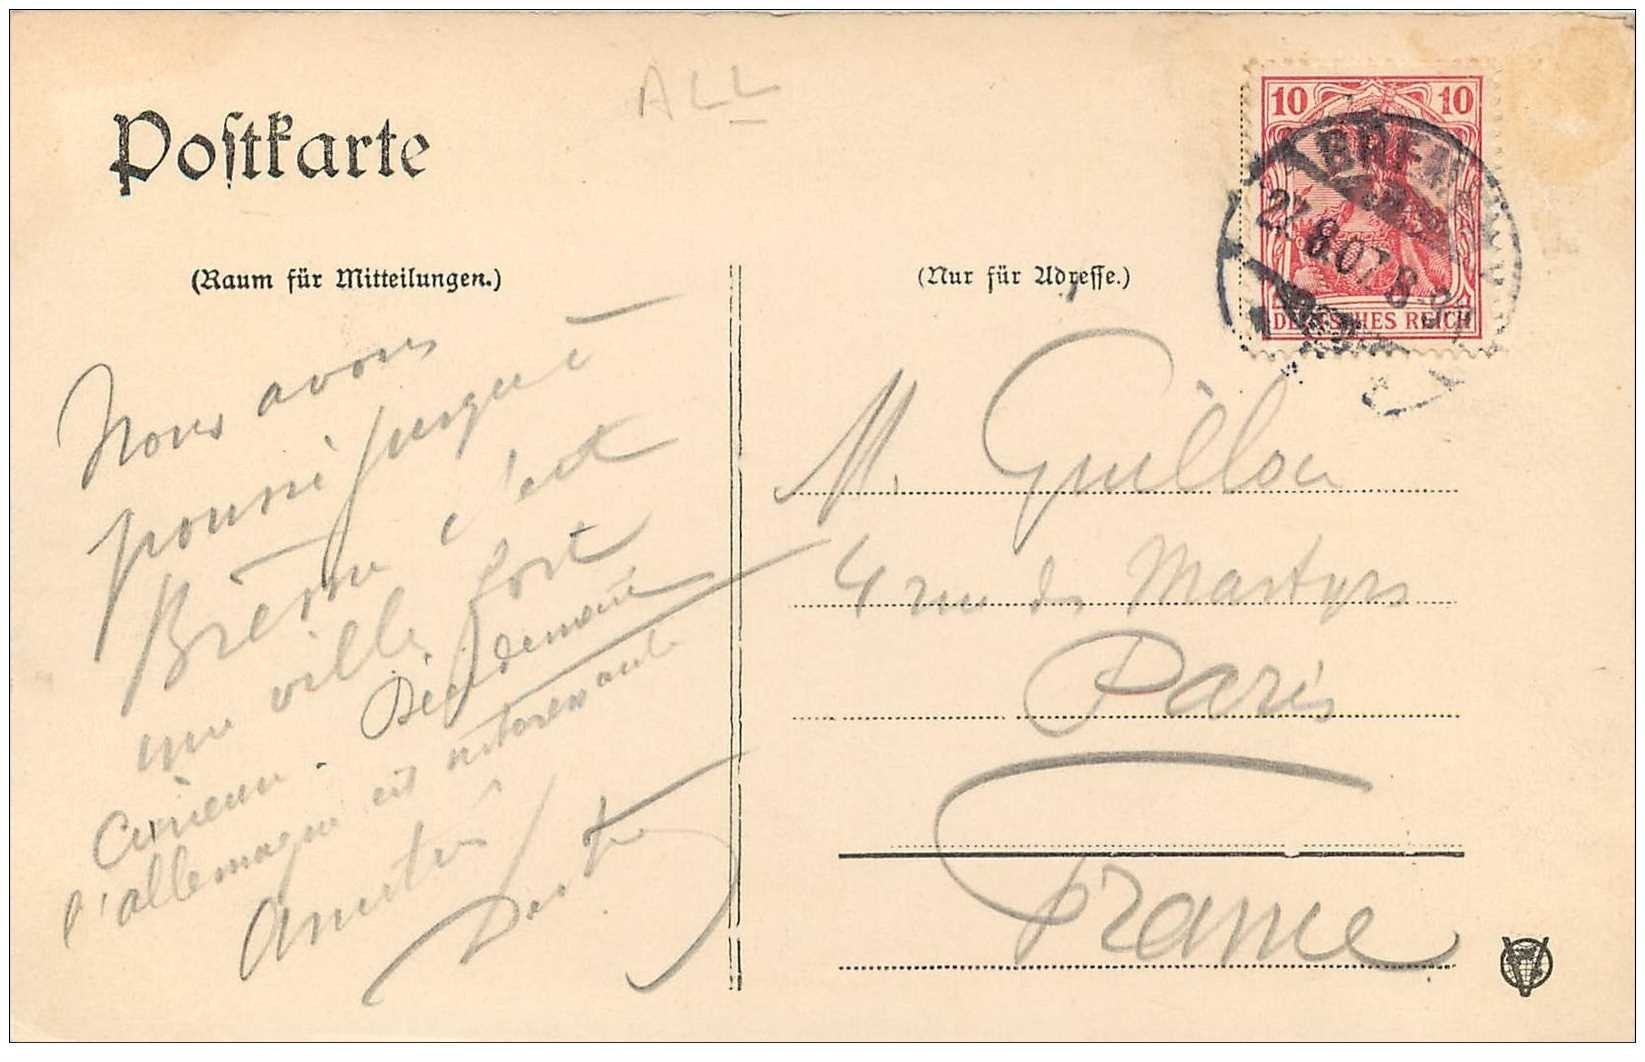 ALL
Postkarte
(Raum für Mitteilungen.)
(Nur für Adresse.)
10 10
DEUTSCHES REICH
BREMEN
27.8.07.8
Nous avons
poussé jusqu'à
Brême c'est
une ville fort
curieuse. Décidément
l'allemagne est intéressante
Amitiés
M. Guillou
4 rue des Martyrs
Paris
France